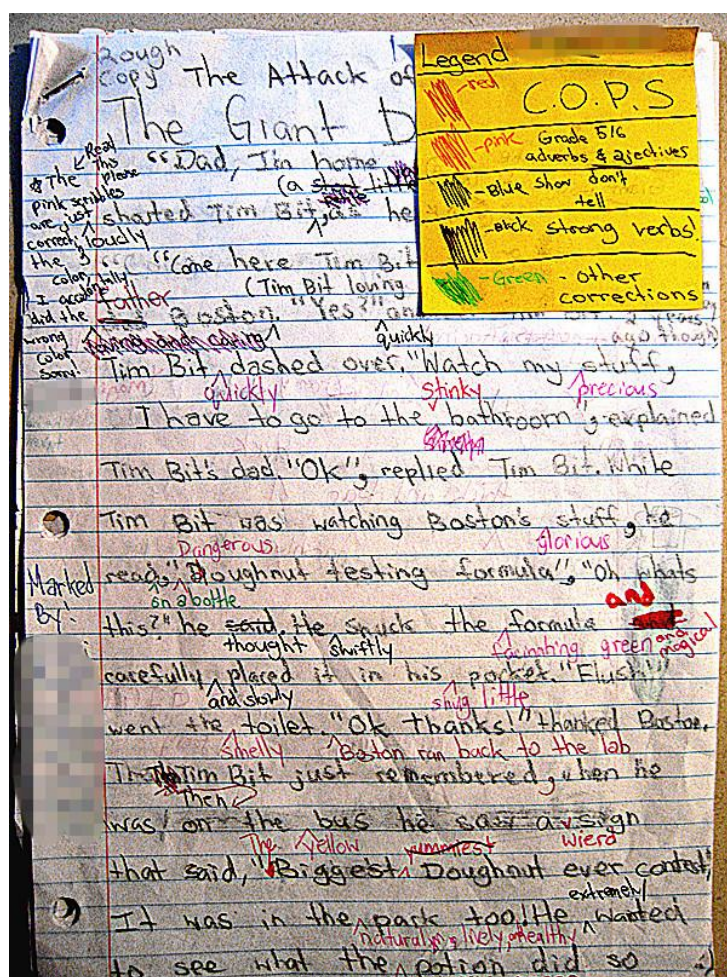 Rough
Copy The Attack of
The Giant D
Legend
-red C.O.P.S
-pink Grade 5/6
adverbs & ajectives
-Blue show don't
tell
-black strong verbs!
-Green - other
corrections
Read
this
please
* The
pink scribbles
are just
correcting
the
color
I accidentally
did the
wrong
color
sorry.
"Dad, I'm home
(a short little
shouted Tim Bit, as he
loudly
"Come here Tim Bit
(Tim Bit loving
father
Boston. "Yes?" an
years
loving and caring
quickly
ago though
Tim Bit dashed over. "Watch my stuff,
quickly stinky precious
I have to go to the bathroom", explained
Tim Bit's dad. "Ok", replied Tim Bit. While
Tim Bit was watching Boston's stuff, he
Dangerous glorious
read, "Doughnut testing formula", "Oh whats
on a bottle and
this?" he said. He snuck the formula and
thought swiftly green and
magical
carefully placed it in his pocket. "Flush!"
and slowly snug little
went the toilet. "Ok thanks!" thanked Boston.
smelly Boston ran back to the lab
Tim Bit just remembered, when he
Then
was on the bus he saw a sign
The yellow yummiest wierd
that said, "Biggest Doughnut ever contest",
extremely
It was in the park too! He wanted
natural, lively, healthy
to see what the potion did so
Marked
By: